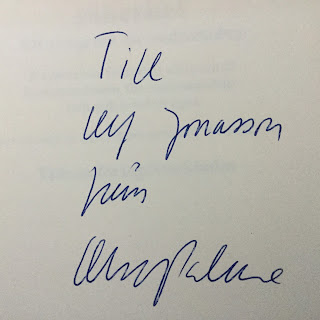 Till
Ulf Jonasson
från
Olof Palme